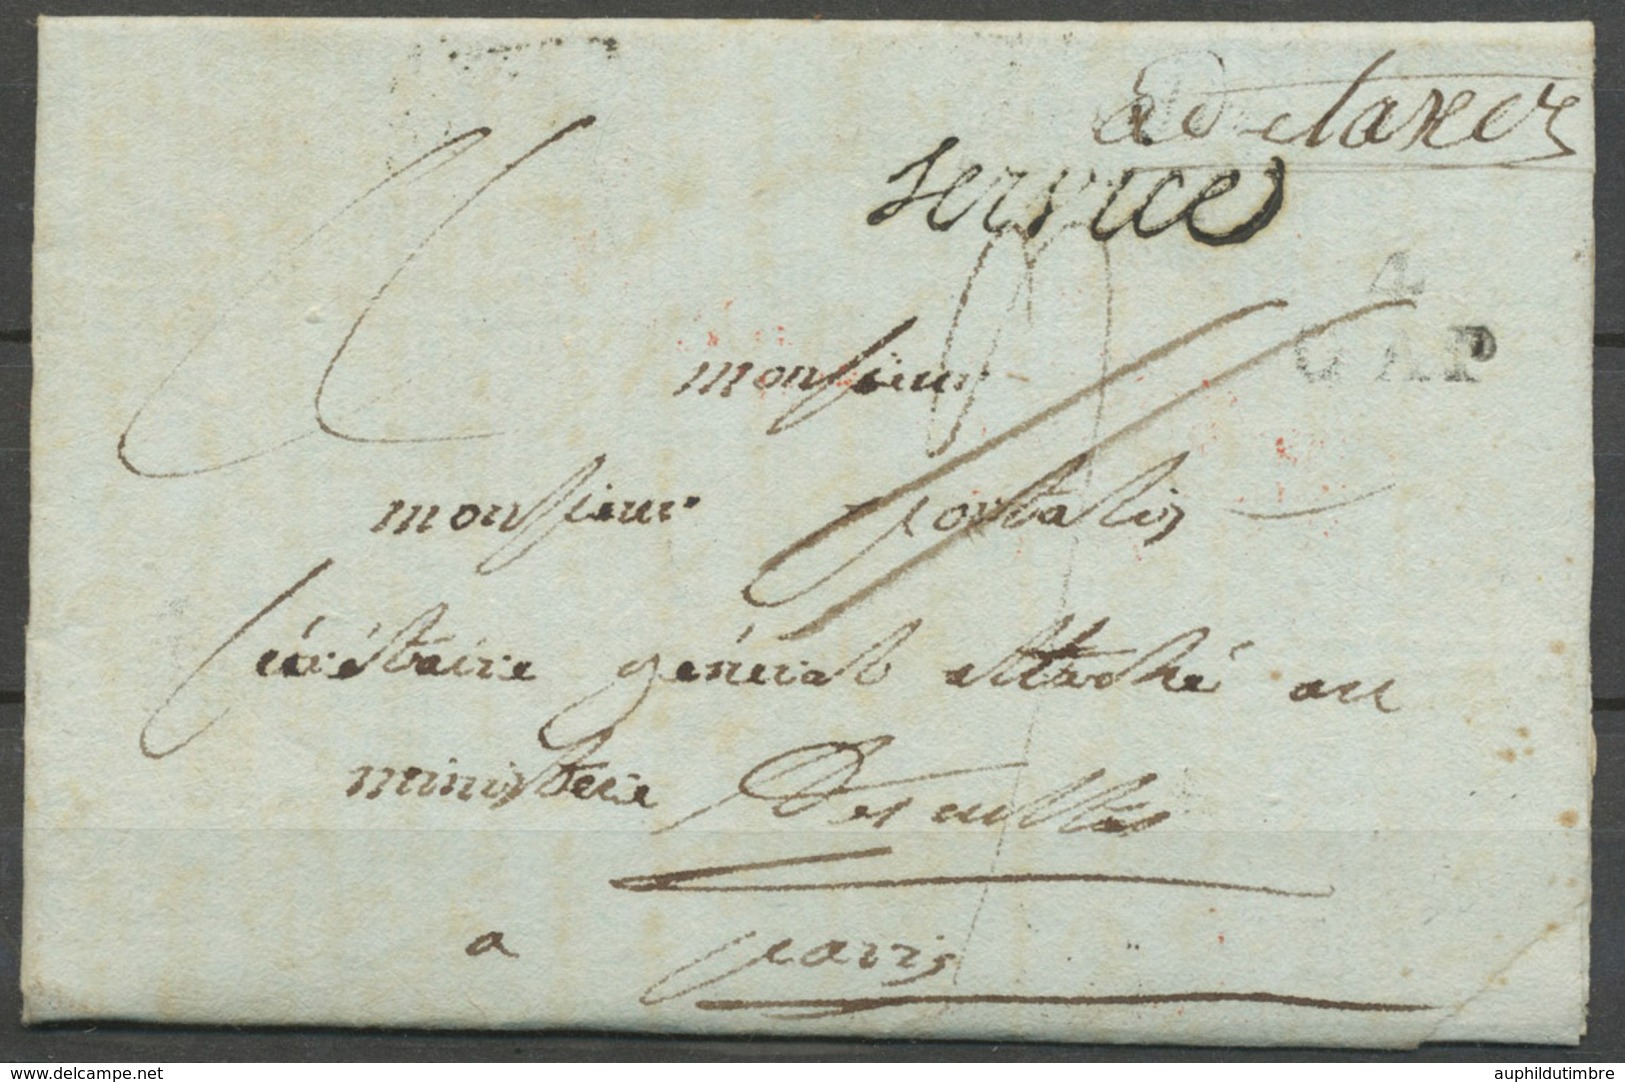 a détaxer
service
4
GAP
monsieur
monsieur portalis
secrétaire général attaché au
ministere Des cultes
a paris
delcampe.net
auphildutimbre